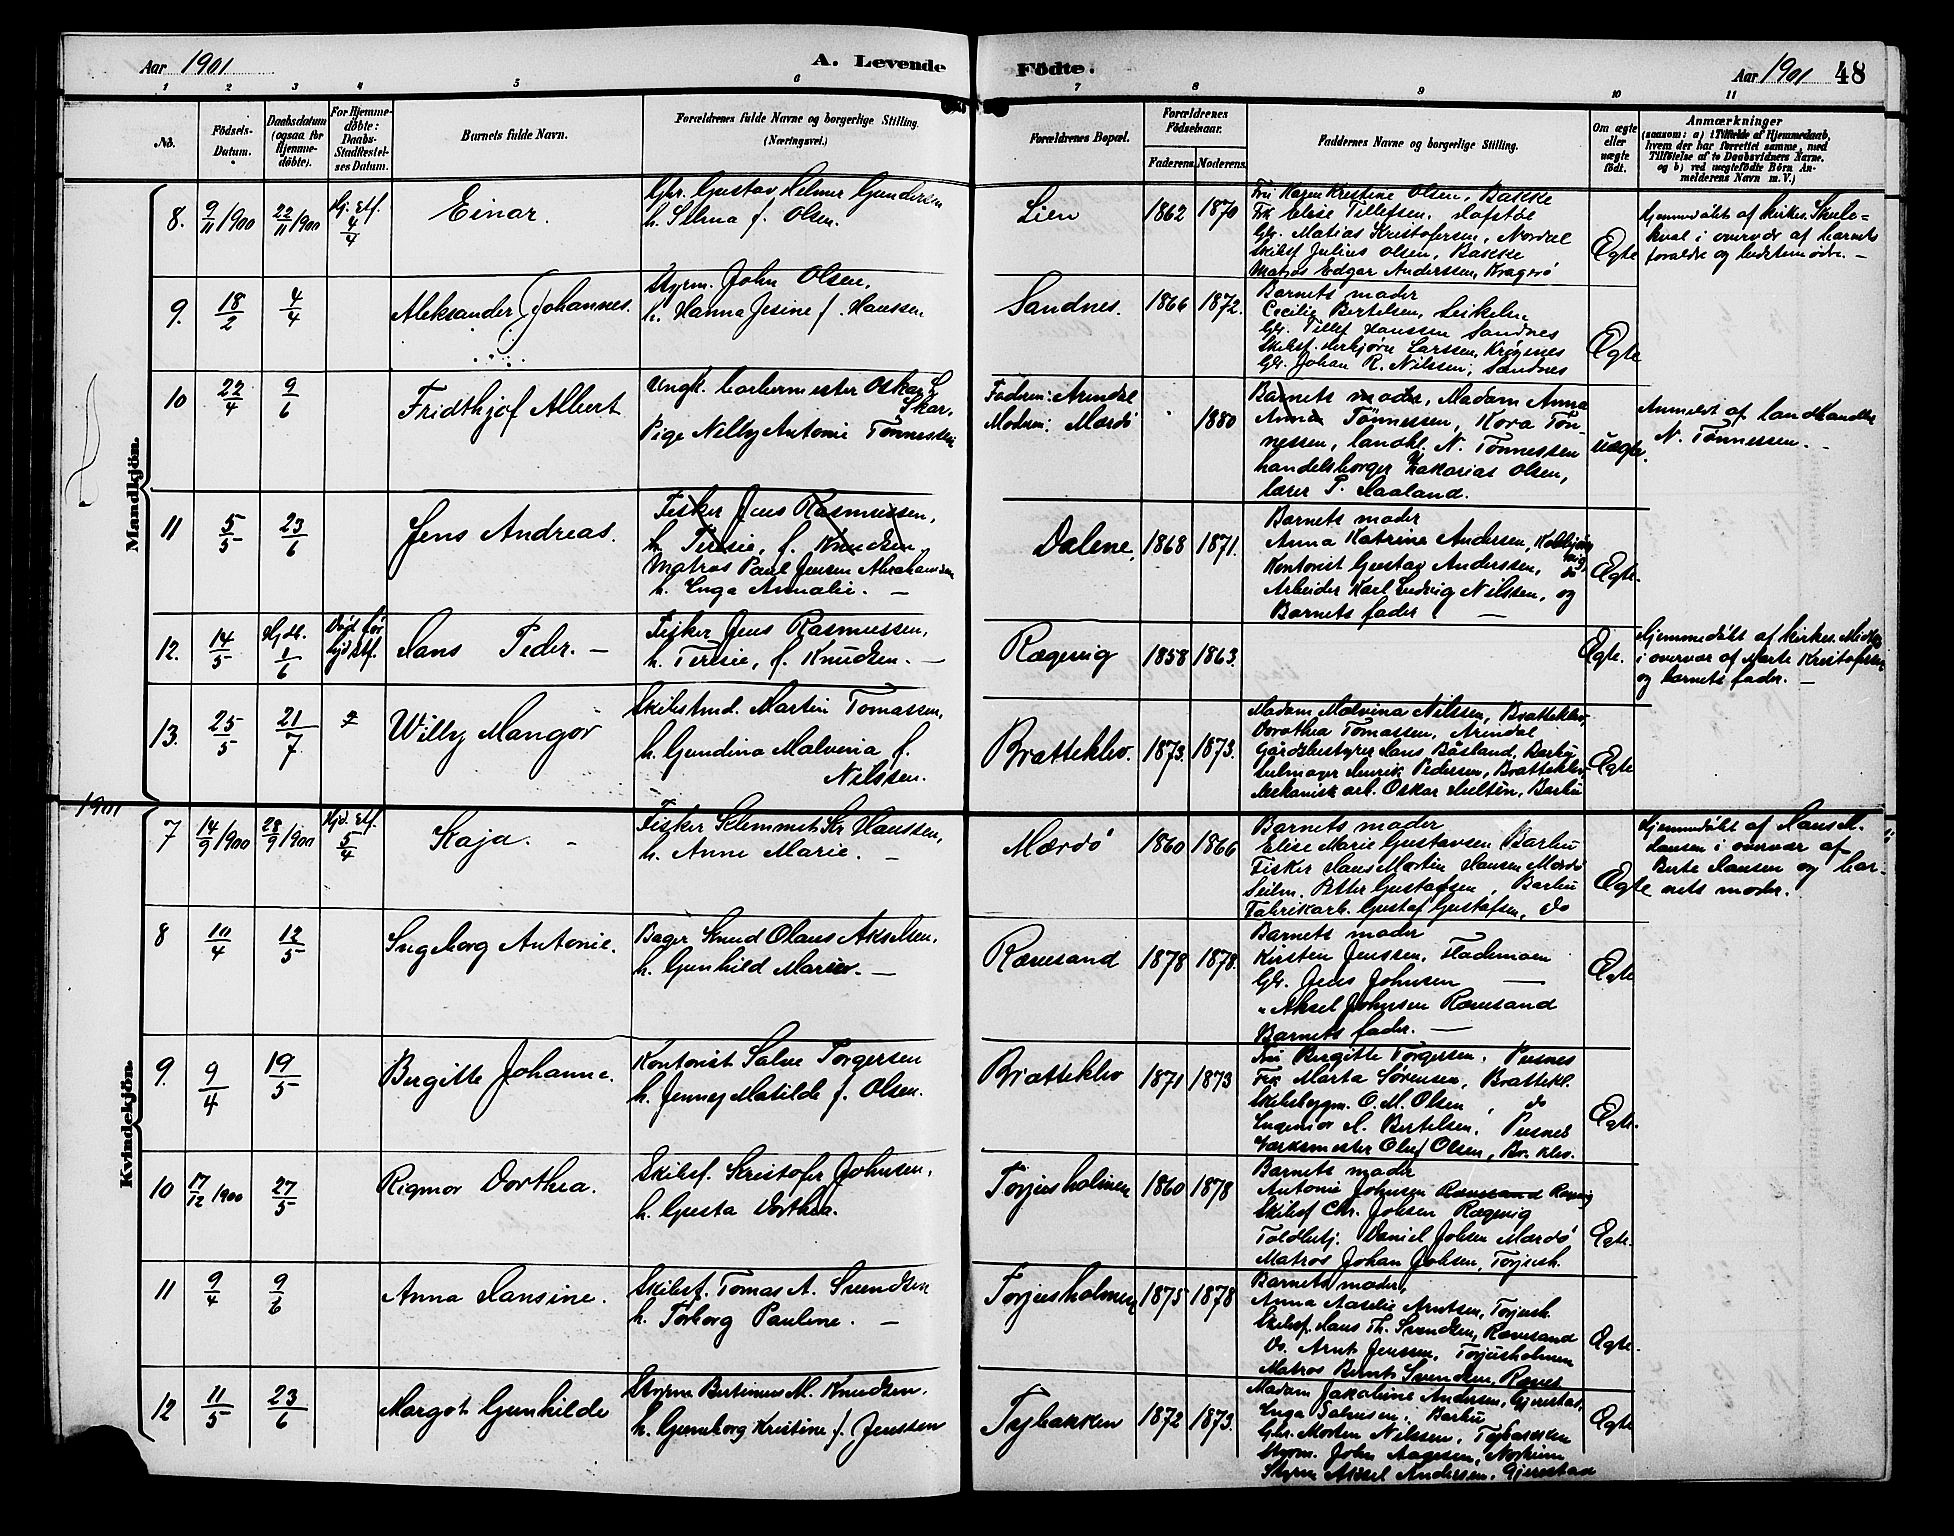 Aar 1901
A. Levende
Födte.
Aar 1901
48
1 2 3 4 5 6 7 8 9 10 11
No.
Födsels-Datum.
Daabsdatum (ogsaa for Hjemme-döbte).
For Hjemme-döbte: Daabs-Stadfæstel-ses Datum.
Barnets fulde Navn.
Forældrenes fulde Navne og borgerlige Stilling. (Næringsvei.)
Forældrenes Bopæl.
Forældrenes Födselsaar.
Faderens. Moderens.
Faddernes Navne og borgerlige Stilling.
Om ægte eller uægte födt.
Anmærkninger
(saasom: a) i Tilfælde af Hjemmedaab, hvem der har forrettet samme, med Tilföielse af to Daabsvidners Navne, og b) ved uægtefödte Börn Anmelderens Navn m. V.)
Mandkjön.
8. 9/11 1900 22/11 1900 Hj. Stf. 4/4
Einar.
Gbr. Gustav Helmer Gundersen
h. Selma f. Olsen.
Lien 1862 1870
Fru Karen Kristine Olsen, Bakke
Frk Elise Tellefsen, Hofstø
Gbr. Matias Kristofersen, Nordal
Skibsf Julius Olsen, Bakke
Matros Edgar Anderssen, Kragerø
Ægte
Hjemmedøbt af kirkes. Skule-
hval i overvær af barnets
forældre og
9. 18/2 4/4
Aleksander Johannes.
Styrm. John Olsen,
h. Hanna Jesine f. Hanssen
Sandnes. 1866 1872.
Barnets moder
Cecilie Bertelsen,
Gbr. Tellef Hanssen Sandnes
Skibsf. Herbjørn Larssen, Krøgenes
Gbr. Johan R. Nilssen, Sandnes
Ægte
10 22/4 9/6
Fridthjof Albert
Ungk. barbermester Oskar
Skar,
Pige Nelly Antonie Tønnessen
Faderen: Arendal
Moderen: Mærdø
1880
Barnets moder, Madam Anna
Tønnessen, Kora Tøn-
nessen, landhl. N. Tønnessen
handelsborger Zakarias Olsen,
lærer P. Haaland.
uægte.
Anmeldt af landhandler
N. Tønnessen. -
11 5/5 23/6
Jens Andreas.
Fisker Jens Rasmussen,
h. Teresie, f. Knudsen
Matros Paul Jensen Abrahamsen
h. Inga Annalie. -
Dalene. 1868 1871.
Barnets moder
Anna Katrine Andersen,
Kontorist Gustav Anderssen, do
Arbeider Karl Ludvig Nilssen, og
Barnets fader -
Ægte.
12. 14/5 Hjdb. 1/6 Død før hjd stf.
Hans Peder. -
Fisker Jens Rasmussen,
h. Teresie, f. Knudsen. -
Rægevig 1858 1863.
Ægte.
Hjemmedøbt af kirkes.
i overvær af Marte Kristofersen
og barnets fader. -
13. 25/5 21/7
Willy Mangor
Skibstmd. Martin Tomassen,
h. Gundina Malvina f.
Nilssen.
Bratteklev. 1873. 1873.
Madam Malvina Nilssen, Bratteklev,
Dorothea Tomassen, Arendal
Gårdsbestyrer Hans Båsland, Barbu
Seilmager Henrik Pedersen, Bratteklev
Mekanisk arb. Oskar Hultin, Barbu
Ægte
1901
Kvindekjön.
7 14/9 1900 28/9 1900 Hjd. Stf. 5/4
Kaja. -
Fisker Klemmet Kr. Hanssen,
h. Anne Marie. -
Mærdø 1860 1866
Barnets moder
Elise Marie Gustavsen Barbu
Fisker Hans Martin Hansen Mærdø
Seilm. Petter Gustafsen, Barbu
Fabrikarb. Gustaf Gustafsen, do
Ægte
Hjemmedøbt af Hans M.
Hansen i overvær af
Berte Hansen og bar-
nets moder.
8 10/4 12/5
Ingeborg Antonie.
Bager Knud Olaus Akselsen,
h. Gunhild Marie. -
Rævesand 1878 1878.
Barnets moder
Kirsten Jenssen, Flademoen
Gbr. Jens Johnsen -
" Aksel Johnsen Rævesand
Barnets fader. -
Ægte
9. 9/4 19/5
Birgitte Johanne.
Kontorist Salve Torgersen
h. Jenney Matilde f. Olsen.
Bratteklev 1871 1873
Fru Bergitte Torgersen, Pusnes
Frk Marta Sørensen, Brattekl.
Skibsbygm. O. M. Olsen, do
Ingeniør H. Bertelsen, Pusnes
Værksmester Oluf Olsen, Br. klev.
Ægte.
10 17/12 1900 27/5
Rigmor Dorthea.
Skibsf. Kristofer Johnsen,
h. Gusta Dorthea.
Torjusholmen 1860 1878
Barnets moder
Antonie Johnsen Rævesand
Skibsf Chr. Jobsen Rægevig
Toldbetj. Daniel Jobsen Mærdø
Matros Johan Jobsen, Torjush.
Egte.
11 9/4 9/6
Anna Hansine.
Skibsf. Tomas A. Svendsen
h. Torborg Pauline. -
Torjusholmen 1875 1878
Barnets moder,
Anna Aaselie Arntsen, Torjush.
Skibsf. Hans Th. Svendsen, Rævesand
Do. Arnt Jenssen, Torjusholmen
Matros Bernt Svendsen,Ræves
Ægte.
12 11/5 23/6
Margot Gunhilde
Styrm Bertinius M. Knudsen,
h. Gunborg Kristine f. Jenssen
Tybakken 1872 1873.
Madam Jakobine Andersen, Gjerestad,
Inga Salvesen, Barbu
Gbr. Morten Nilssen, Tybakken
Styrm. John Aagesen,
Styrm Aksel Andersen, Gjerestad
Ægte